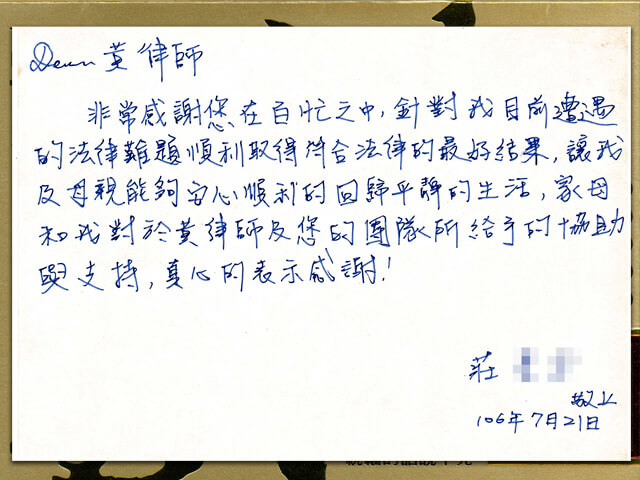 Dear 黃律師
非常感謝您在百忙之中,針對我目前遭遇
的法律難題順利取得符合法律的最好結果,讓我
及母親能夠安心順利的回歸平靜的生活,家母
和我對於黃律師及您的團隊所給予的協助
與支持,真心的表示感謝!
莊
敬上
106年7月21日